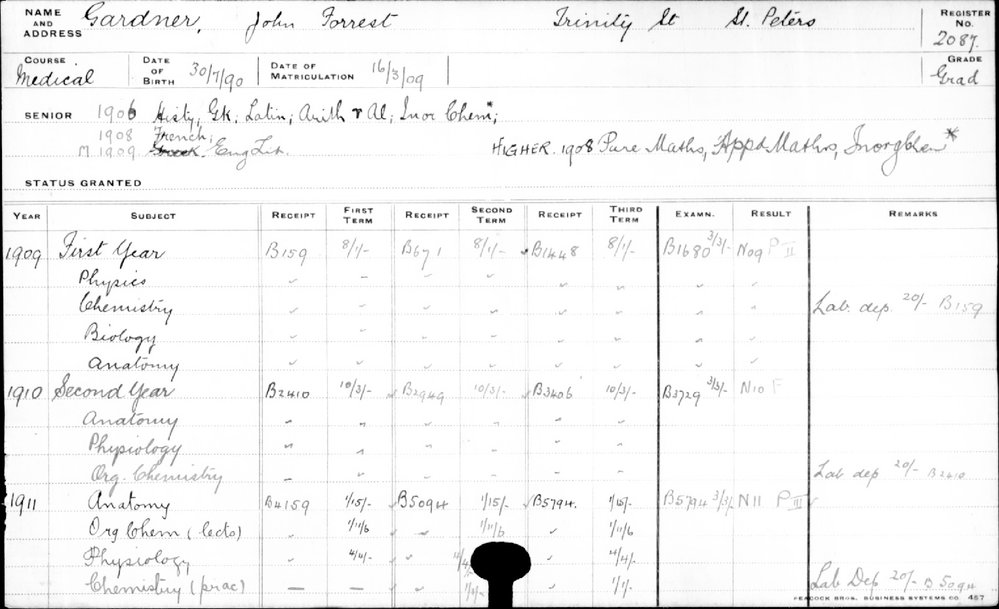 NAME AND ADDRESS Gardner, John Forrest Trinity St St. Peters REGISTER No. 2087.
COURSE Medical DATE OF BIRTH 30/7/90 DATE OF MATRICULATION 16/3/09 GRADE Grad
SENIOR 1906 Histy; Gk; Latin; Arith & Al; Inor Chem*;
1908 French;
M 1909. Greek. Eng Lit. HIGHER. 1908 Pure Maths, Appd Maths, Inorg Chem*
STATUS GRANTED
YEAR SUBJECT RECEIPT FIRST TERM RECEIPT SECOND TERM RECEIPT THIRD TERM EXAMN. RESULT REMARKS
1909 First Year B159 8/1/- B671 8/1/- B1448 8/1/- B1680 3/3/- N09 P II
Physics
Chemistry Lab. dep 20/- B159
Biology
Anatomy
1910 Second Year B2410 10/3/- B2949 10/3/- B3406 10/3/- B3729 3/3/- N10 F
Anatomy
Physiology
Org. Chemistry Lab dep 20/- B2410
1911 Anatomy B4159 1/15/- B5094 1/15/- B5794. 1/15/- B5794 3/3/- N11 P III
Org Chem (lects) 1/11/6 1/11/6 1/11/6
Physiology 4/4/- 4/4/-
Chemistry (prac) — — 1/1/- Lab Dep 20/- B5094
PEACOCK BROS. BUSINESS SYSTEMS CO. 487